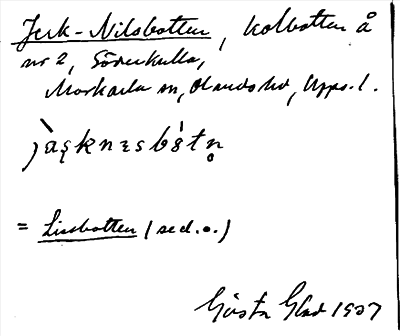 Jerk-Nilsbotten, kolbotten å
nr 2, Söderkulla,
Morkarla sn, Olands hd, Upps. l.
= Lissbotten (se d.o.)
Gösta Glad 1937